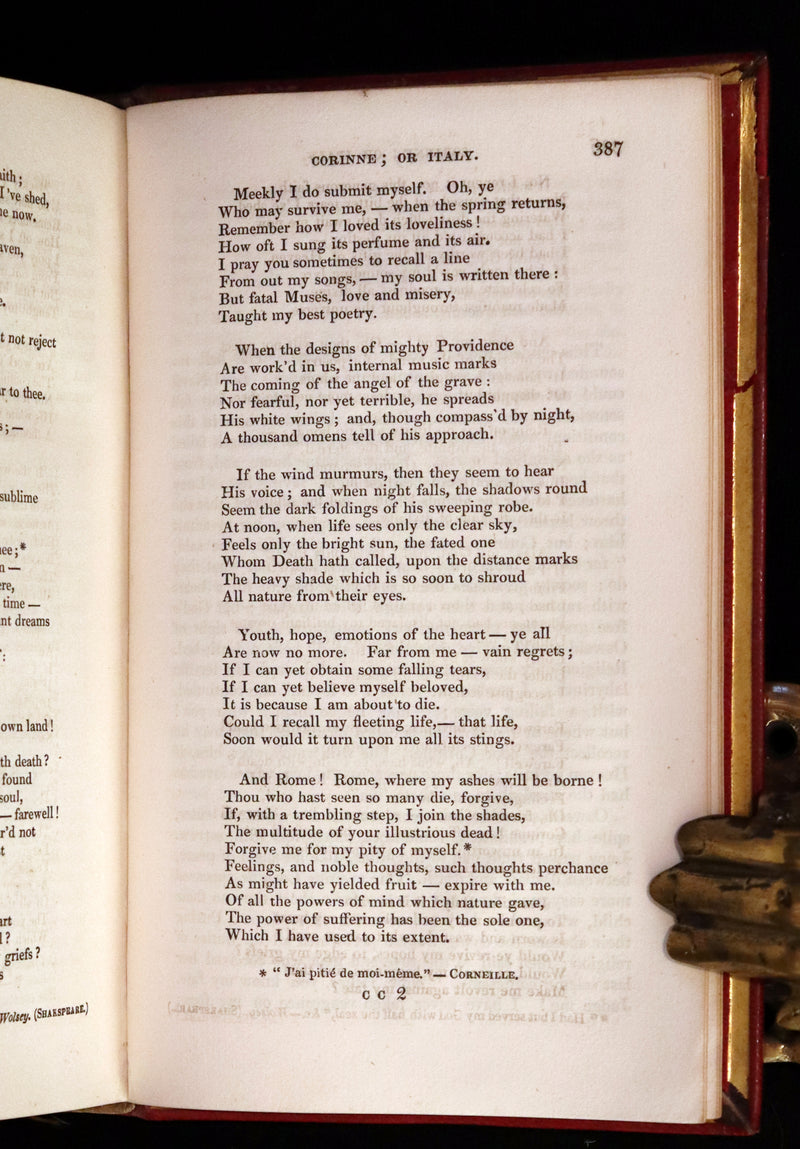 ith;
I've shed,
now.
ven,
t not reject
r to thee.
;—
sublime
ee;*
—
re,
time —
nt dreams
own land!
th death?
found
soul,
— farewell!
r'd not
t
rt
?
griefs?
s
Wolsey. (SHAKSPEARE.)
CORINNE; OR ITALY. 387
Meekly I do submit myself. Oh, ye
Who may survive me, — when the spring returns,
Remember how I loved its loveliness!
How oft I sung its perfume and its air.
I pray you sometimes to recall a line
From out my songs, — my soul is written there:
But fatal Muses, love and misery,
Taught my best poetry.
When the designs of mighty Providence
Are work'd in us, internal music marks
The coming of the angel of the grave:
Nor fearful, nor yet terrible, he spreads
His white wings; and, though compass'd by night,
A thousand omens tell of his approach.
If the wind murmurs, then they seem to hear
His voice; and when night falls, the shadows round
Seem the dark foldings of his sweeping robe.
At noon, when life sees only the clear sky,
Feels only the bright sun, the fated one
Whom Death hath called, upon the distance marks
The heavy shade which is so soon to shroud
All nature from their eyes.
Youth, hope, emotions of the heart — ye all
Are now no more. Far from me — vain regrets;
If I can yet obtain some falling tears,
If I can yet believe myself beloved,
It is because I am about to die.
Could I recall my fleeting life,— that life,
Soon would it turn upon me all its stings.
And Rome! Rome, where my ashes will be borne!
Thou who hast seen so many die, forgive,
If, with a trembling step, I join the shades,
The multitude of your illustrious dead!
Forgive me for my pity of myself.*
Feelings, and noble thoughts, such thoughts perchance
As might have yielded fruit — expire with me.
Of all the powers of mind which nature gave,
The power of suffering has been the sole one,
Which I have used to its extent.
* "J'ai pitié de moi-même." — CORNEILLE.
C C 2